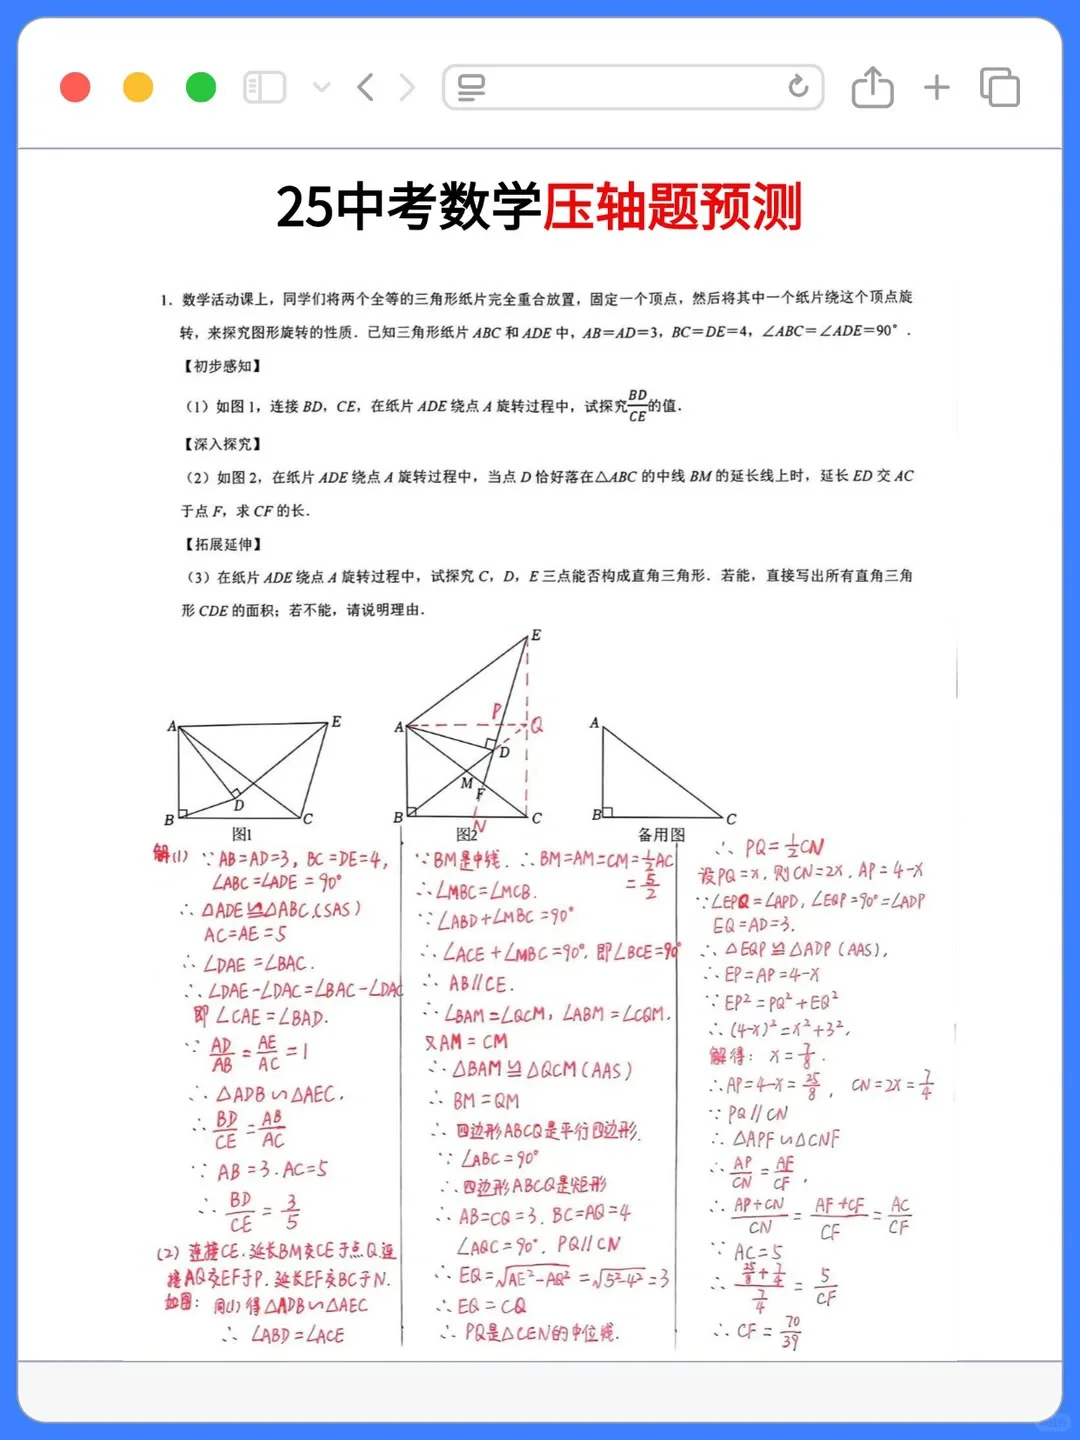 25中考数学压轴题预测
1. 数学活动课上，同学们将两个全等的三角形纸片完全重合放置，固定一个顶点，然后将其中一个纸片绕这个顶点旋
转，来探究图形旋转的性质．已知三角形纸片 ABC 和 ADE 中，AB=AD=3，BC=DE=4，∠ABC=∠ADE=90°．
【初步感知】
（1）如图 1，连接 BD，CE，在纸片 ADE 绕点 A 旋转过程中，试探究BD/CE的值．
【深入探究】
（2）如图 2，在纸片 ADE 绕点 A 旋转过程中，当点 D 恰好落在△ABC 的中线 BM 的延长线上时，延长 ED 交 AC
于点 F，求 CF 的长．
【拓展延伸】
（3）在纸片 ADE 绕点 A 旋转过程中，试探究 C，D，E 三点能否构成直角三角形．若能，直接写出所有直角三角
形 CDE 的面积；若不能，请说明理由．
A E B D C
图1
E A P Q D M F B N C
图2
A B C
备用图
解(1) ∵AB=AD=3, BC=DE=4,
∠ABC=∠ADE=90°
∴△ADE≌△ABC.(SAS)
AC=AE=5
∴∠DAE=∠BAC.
∴∠DAE-∠DAC=∠BAC-∠DAC
即∠CAE=∠BAD.
∵AD/AB=AE/AC=1
∴△ADB∽△AEC.
∴BD/CE=AB/AC
∵AB=3.AC=5
∴BD/CE=3/5
(2) 连接CE.延长BM交CE于点Q.连
接AQ交EF于P.延长EF交BC于N.
如图: 同(1)得△ADB∽△AEC
∴∠ABD=∠ACE
∵BM是中线. ∴BM=AM=CM=1/2AC
=5/2
∴∠MBC=∠MCB.
∵∠ABD+∠MBC=90°
∴∠ACE+∠MBC=90°.即∠BCE=90°
∴AB//CE.
∴∠BAM=∠QCM, ∠ABM=∠CQM.
又AM=CM
∴△BAM≌△QCM(AAS)
∴BM=QM
∴四边形ABCQ是平行四边形.
∵∠ABC=90°
∴四边形ABCQ是矩形
∴AB=CQ=3. BC=AQ=4
∠AQC=90°. PQ//CN
∴EQ=√AE²-AQ²=√5²-4²=3
∴EQ=CQ
∴PQ是△CEN的中位线.
∴PQ=1/2CN
设PQ=x,则CN=2x.AP=4-x
∵∠EPQ=∠APD, ∠EQP=90°=∠ADP
EQ=AD=3.
∴△EQP≌△ADP(AAS),
∴EP=AP=4-x
∵EP²=PQ²+EQ²
∴(4-x)²=x²+3²,
解得: x=7/8.
∴AP=4-x=25/8, CN=2x=7/4
∵PQ//CN
∴△APF∽△CNF
∴AP/CN=AF/CF,
∴AP+CN/CN=AF+CF/CF=AC/CF
∵AC=5
∴25/8+7/4/7/4=5/CF
∴CF=70/39